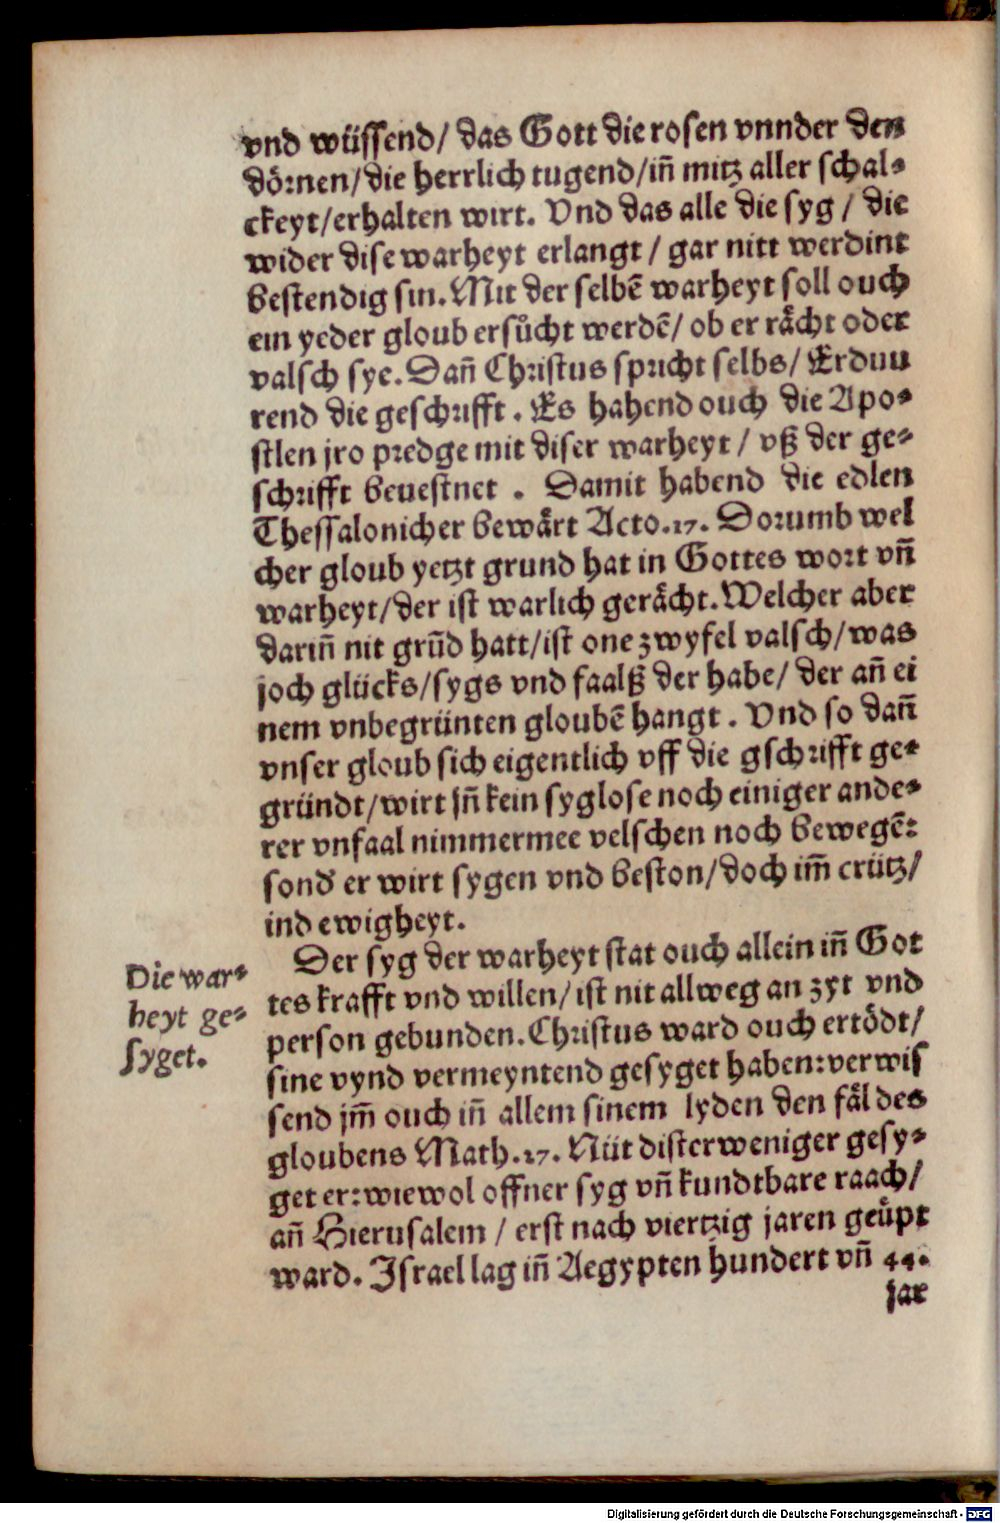 vnd wüssend/ das Gott die rosen vnnder den
dörnen/die herrlich tugend/iñ mitz aller schal⸗
ckeyt/erhalten wirt. Vnd das alle die syg / die
wider dise warheyt erlangt / gar nitt werdint
bestendig sin. Mit der selbē warheyt soll ouch
ein yeder gloub ersůcht werdē/ ob er rächt oder
valsch sye. Dañ Christus spricht selbs/ Erduu
rend die geschrifft. Es hahend ouch die Apo⸗
stlen jro predge mit diser warheyt / vß der ge⸗
schrifft bevestnet . Damit habend die edlen
Thessalonicher bewärt Acto.17. Dorumb wel
cher gloub yetzt grund hat in Gottes wort vñ
warheyt/der ist warlich gerächt. Welcher aber
dariñ nit grūd hatt/ist one zwyfel valsch/was
joch glücks/sygs vnd faalß der habe/ der añ ei
nem vnbegrünten gloubē hangt. Vnd so dañ
vnser gloub sich eigentlich vff die gschrifft ge⸗
gründt/wirt jñ kein syglose noch einiger ande⸗
rer vnfaal nimmermee velschen noch bewegē:
sond er wirt sygen vnd beston/doch im̄ crütz/
ind ewigheyt.
Der syg der warheyt stat ouch allein iñ Got
tes krafft vnd willen/ist nit allweg an zyt vnd
person gebunden. Christus ward ouch ertödt/
sine vynd vermeyntend gesyget haben: verwis
send jm̄ ouch iñ allem sinem lyden den fäl des
gloubens Math.27. Nüt disterweniger gesy⸗
get er: wiewol offner syg vñ kundtbare raach/
añ Hierusalem / erst nach viertzig jaren geüpt
ward. Israel lag iñ Aegypten hundert vñ 44.
jar
Die war⸗
heyt ge⸗
syget.
Digitalisierung gefördert durch die Deutsche Forschungsgemeinschaft - DFG